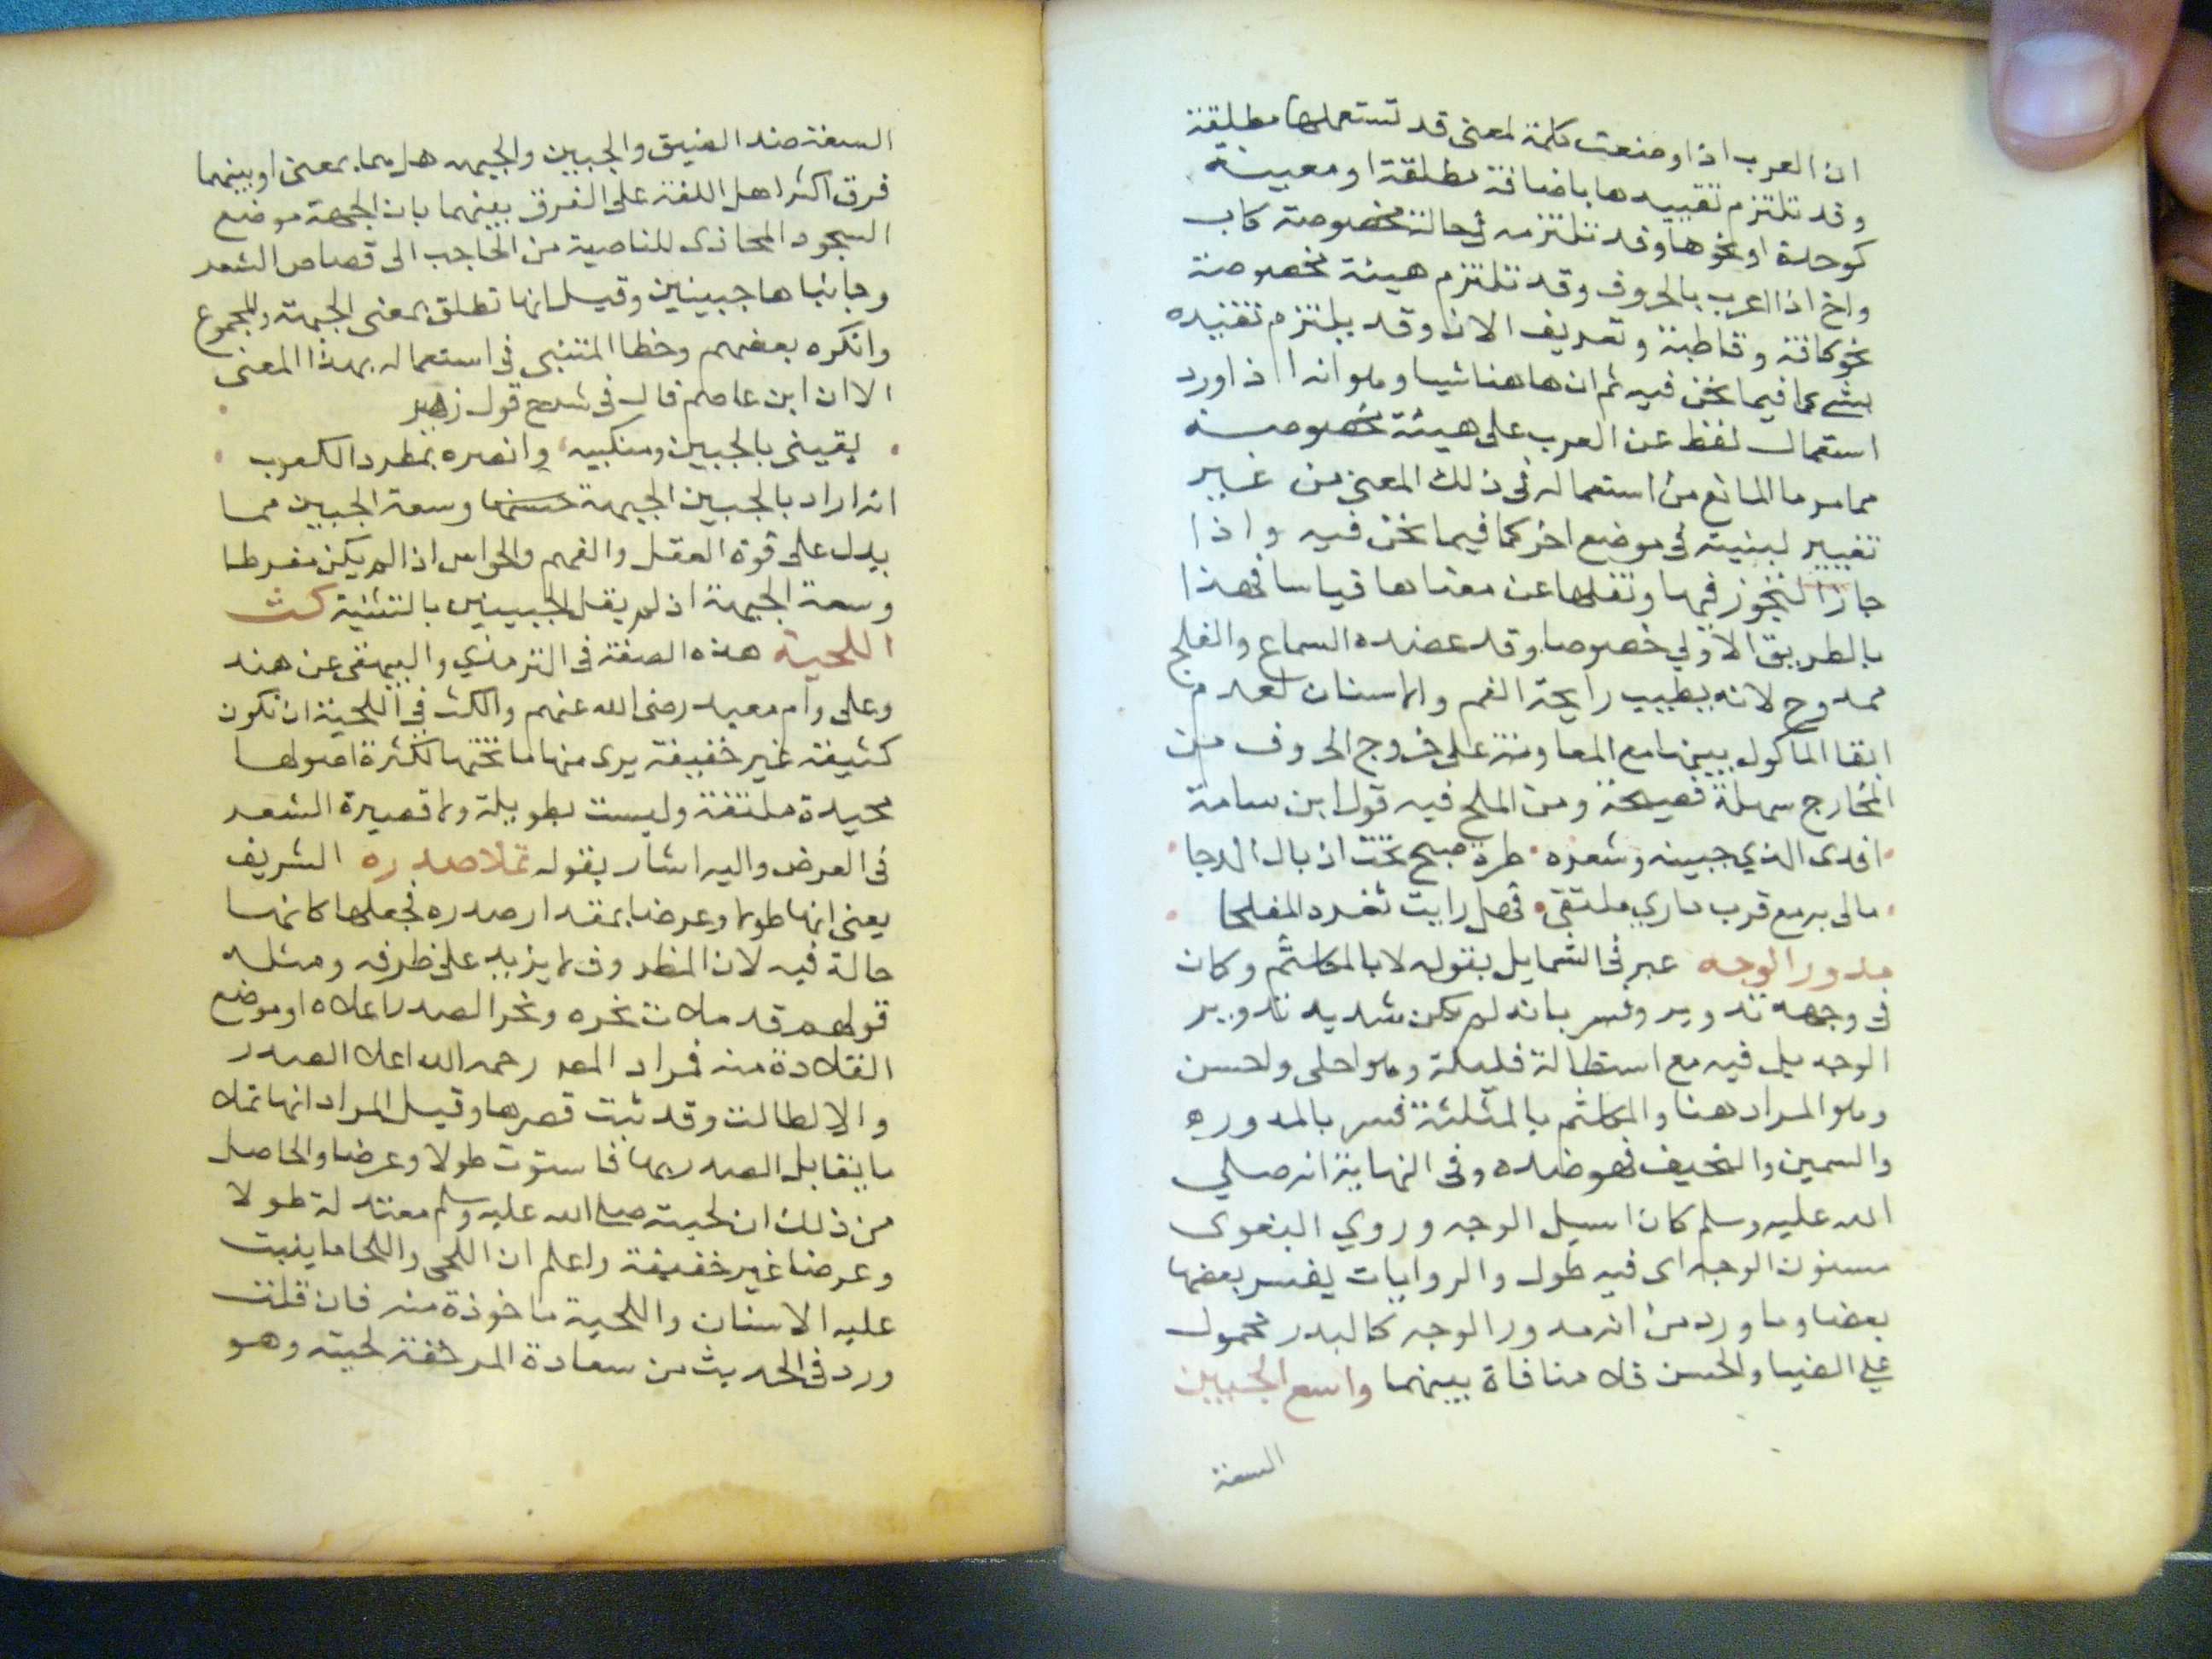 ان العرب اذا وضعت كلمة لمعنى قد تستعملها مطلقة
وقد تلتزم تقييدها باضافة مطلقة او معينة
كوحدة او نحوها وقد تلتزمه في حالة مخصوصة كاب
واخ اذا اعرب بالحروف وقد تلتزم هيئة مخصوصة
نحو كافة وقاطبة وتعريف الان وقد يلتزم تقييده
بشي كما فيما نحن فيه ثم ان هاهنا شيا وهو انه اذا ورد
استعمال لفظ عن العرب على هيئة مخصوصة
مما مر ما المانع من استعماله في ذلك المعنى من غير
تغيير لبنيته في موضع اخر كما فيما نحن فيه واذا
جاز التجوز فيها ونقلها عن معناها قياسا فهذا
بالطريق الاولي خصوصا وقد عضده السماع والفلج
ممدوح لانه يطيب رايحة الفم والاسنان لعدم
ابقا الماكول بينها مع المعاونة على خروج الحروف من
المخارج سهلة فصيحة ومن الملح فيه قول ابن سامة
افدى الذي جبينه وشعره طرة صبح تحت اذيال الدجا
مالى به مع قرب داري ملتقى فهل رايت ثغره المفلجا
مدور الوجه عبر في الشمايل بقوله لا بالمكلثم وكان
في وجهه تدوير وفسر بانه لم يكن شديد تدوير
الوجه بل فيه مع استطالة قليلة وهو احلى واحسن
وهو المراد هنا والمكلثم بالمثلثة فسر بالمدوره
والسمين والنحيف فهو ضده وفي النهاية انه صلي
الله عليه وسلم كان اسيل الوجه وروي البغوى
مسنون الوجه اى فيه طول والروايات يفسر بعضها
بعضا وما ورد من انه مدور الوجه كالبدر محمول
علي الضيا والحسن فلا منافاة بينهما واسع الجبين
السعة
السعة ضد الضيق والجبين والجبهه هل هما بمعنى او بينهما
فرق اكثر اهل اللغة على الفرق بينهما بان الجبهة موضع
السجود المحاذى للناصية من الحاجب الى قصاص الشعر
وجانباها جبينين وقيل انها تطلق بمعنى الجبهة وللمجموع
وانكره بعضهم وخطا المتنبى في استعماله بهذا المعنى
الا ان ابن عاصم قال في شرح قول زهير
يقينى بالجبين ومنكبيه وانصره بمطرد الكعوب
انه اراد بالجبين الجبهة حسنها وسعة الجبين مما
يدل على قوة العقل والفهم والحواس اذا لم يكن مفرطا
وسعة الجبهة اذ لم يقل الجبينين بالتثنية كث
اللحية هذه الصفة في الترمذي والبيهقى عن هند
وعلى وام معبد رضى الله عنهم والكث في اللحية ان تكون
كثيفة غير خفيفة يرى منها ما تحتها لكثرة اصولها
ملتفة وليست بطويلة ولا قصيرة الشعر
في العرض واليه اشار بقوله تملا صدره الشريف
يعنى انها طولا وعرضا بمقدار صدره فجعلها كانها
حالة فيه لان المظروف لا يزيد على ظرفه ومثله
قولهم قد ملات نحره ونحر الصدر اعلاه او موضع
القلادة منه فمراد المصـ رحمه الله اعلا الصدر
والا لطالت وقد ثبت قصرها وقيل المراد انها تملا
ما يقابل الصدر بها فاستوت طولا وعرضا والحاصل
من ذلك ان لحيته صلى الله عليه وسلم معتدلة طولا
وعرضا غير خفيفة واعلم ان اللحى واللحا ما ينبت
عليه الاسنان واللحية ماخوذة منه فان قلت
ورد في الحديث من سعادة المر خفة لحيته وهو